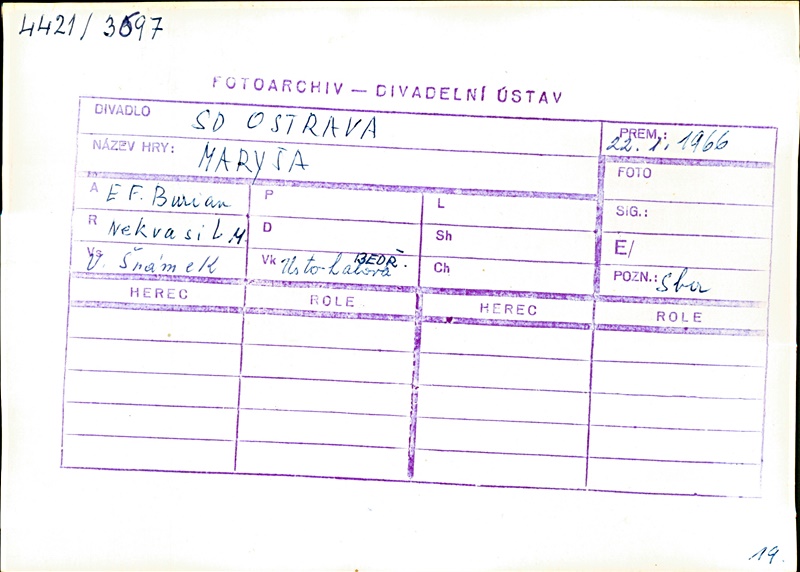 4421/3697
FOTOARCHIV — DIVADELNÍ ÚSTAV
DIVADLO SD OSTRAVA
PREM.: 22. 1. 1966
NÁZEV HRY: MARYŠA
FOTO
A E F. Burian
P
L
SIG.:
R Nekvasil M
D
Sh
E/
Vs V. Šrámek
Vk BEDŘ.
Ch
POZN.: Sbor
HEREC ROLE HEREC ROLE
19.